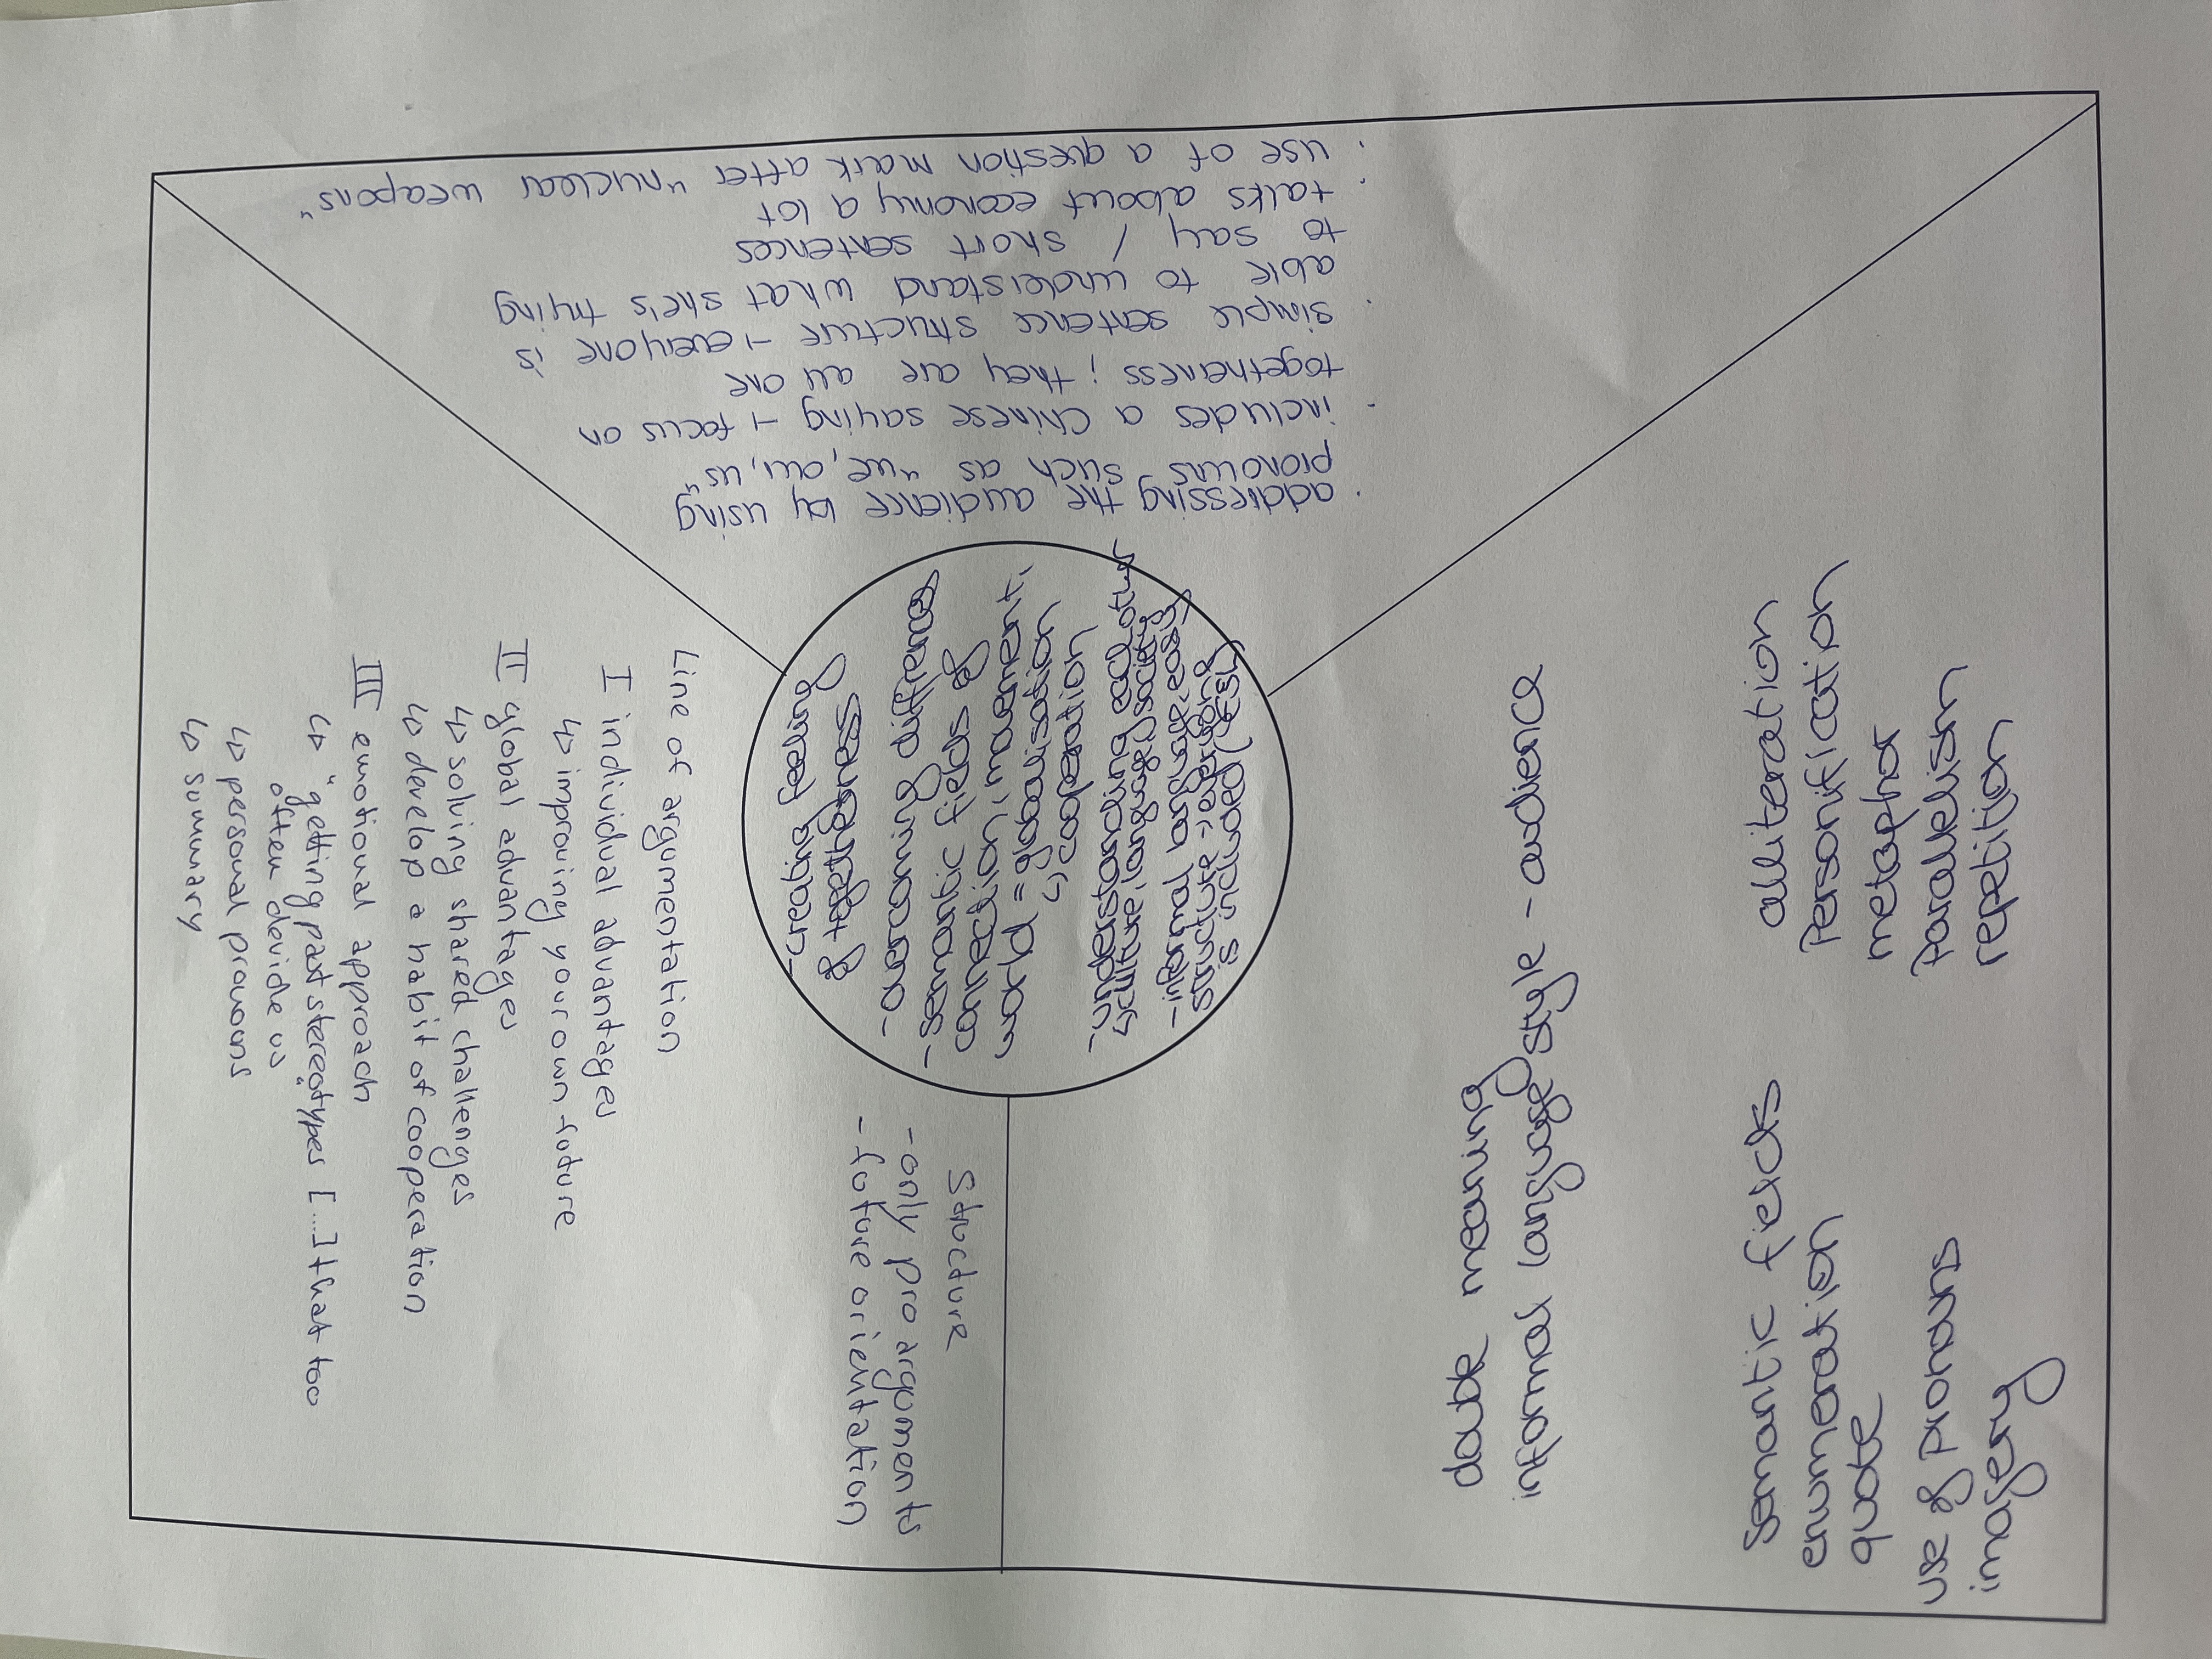 · addressing the audience by using
pronouns such as "we, our, us"
· includes a chinese saying → focus on
togetherness ; they are all one
· simple sentence structure → everyone is
able to understand what she's trying
to say / short sentences
· talks about economy a lot
· use of a question mark after "nuclear weapons"
Line of argumentation
I individual advantages
↳ improving your own future
II global advantages
↳ solving shared challenges
↳ develop a habit of cooperation
III emotional approach
↳ "getting past stereotypes [...] that too
often devide us"
↳ personal pronouns
↳ summary
Structure
- only pro arguments
- future orientation
- creating feeling
of togetherness
- overcoming differences
- semantic fields of
connection, movement,
world = globalisation
↳ cooperation
- understanding each other
↳ culture, language, society
- informal language, easy
structure = everyone
is included (ESL)
double meaning
informal language style - audience
alliteration
Personification
metaphor
Parallelism
repetition
semantic fields
enumeration
quote
use of pronouns
imagery